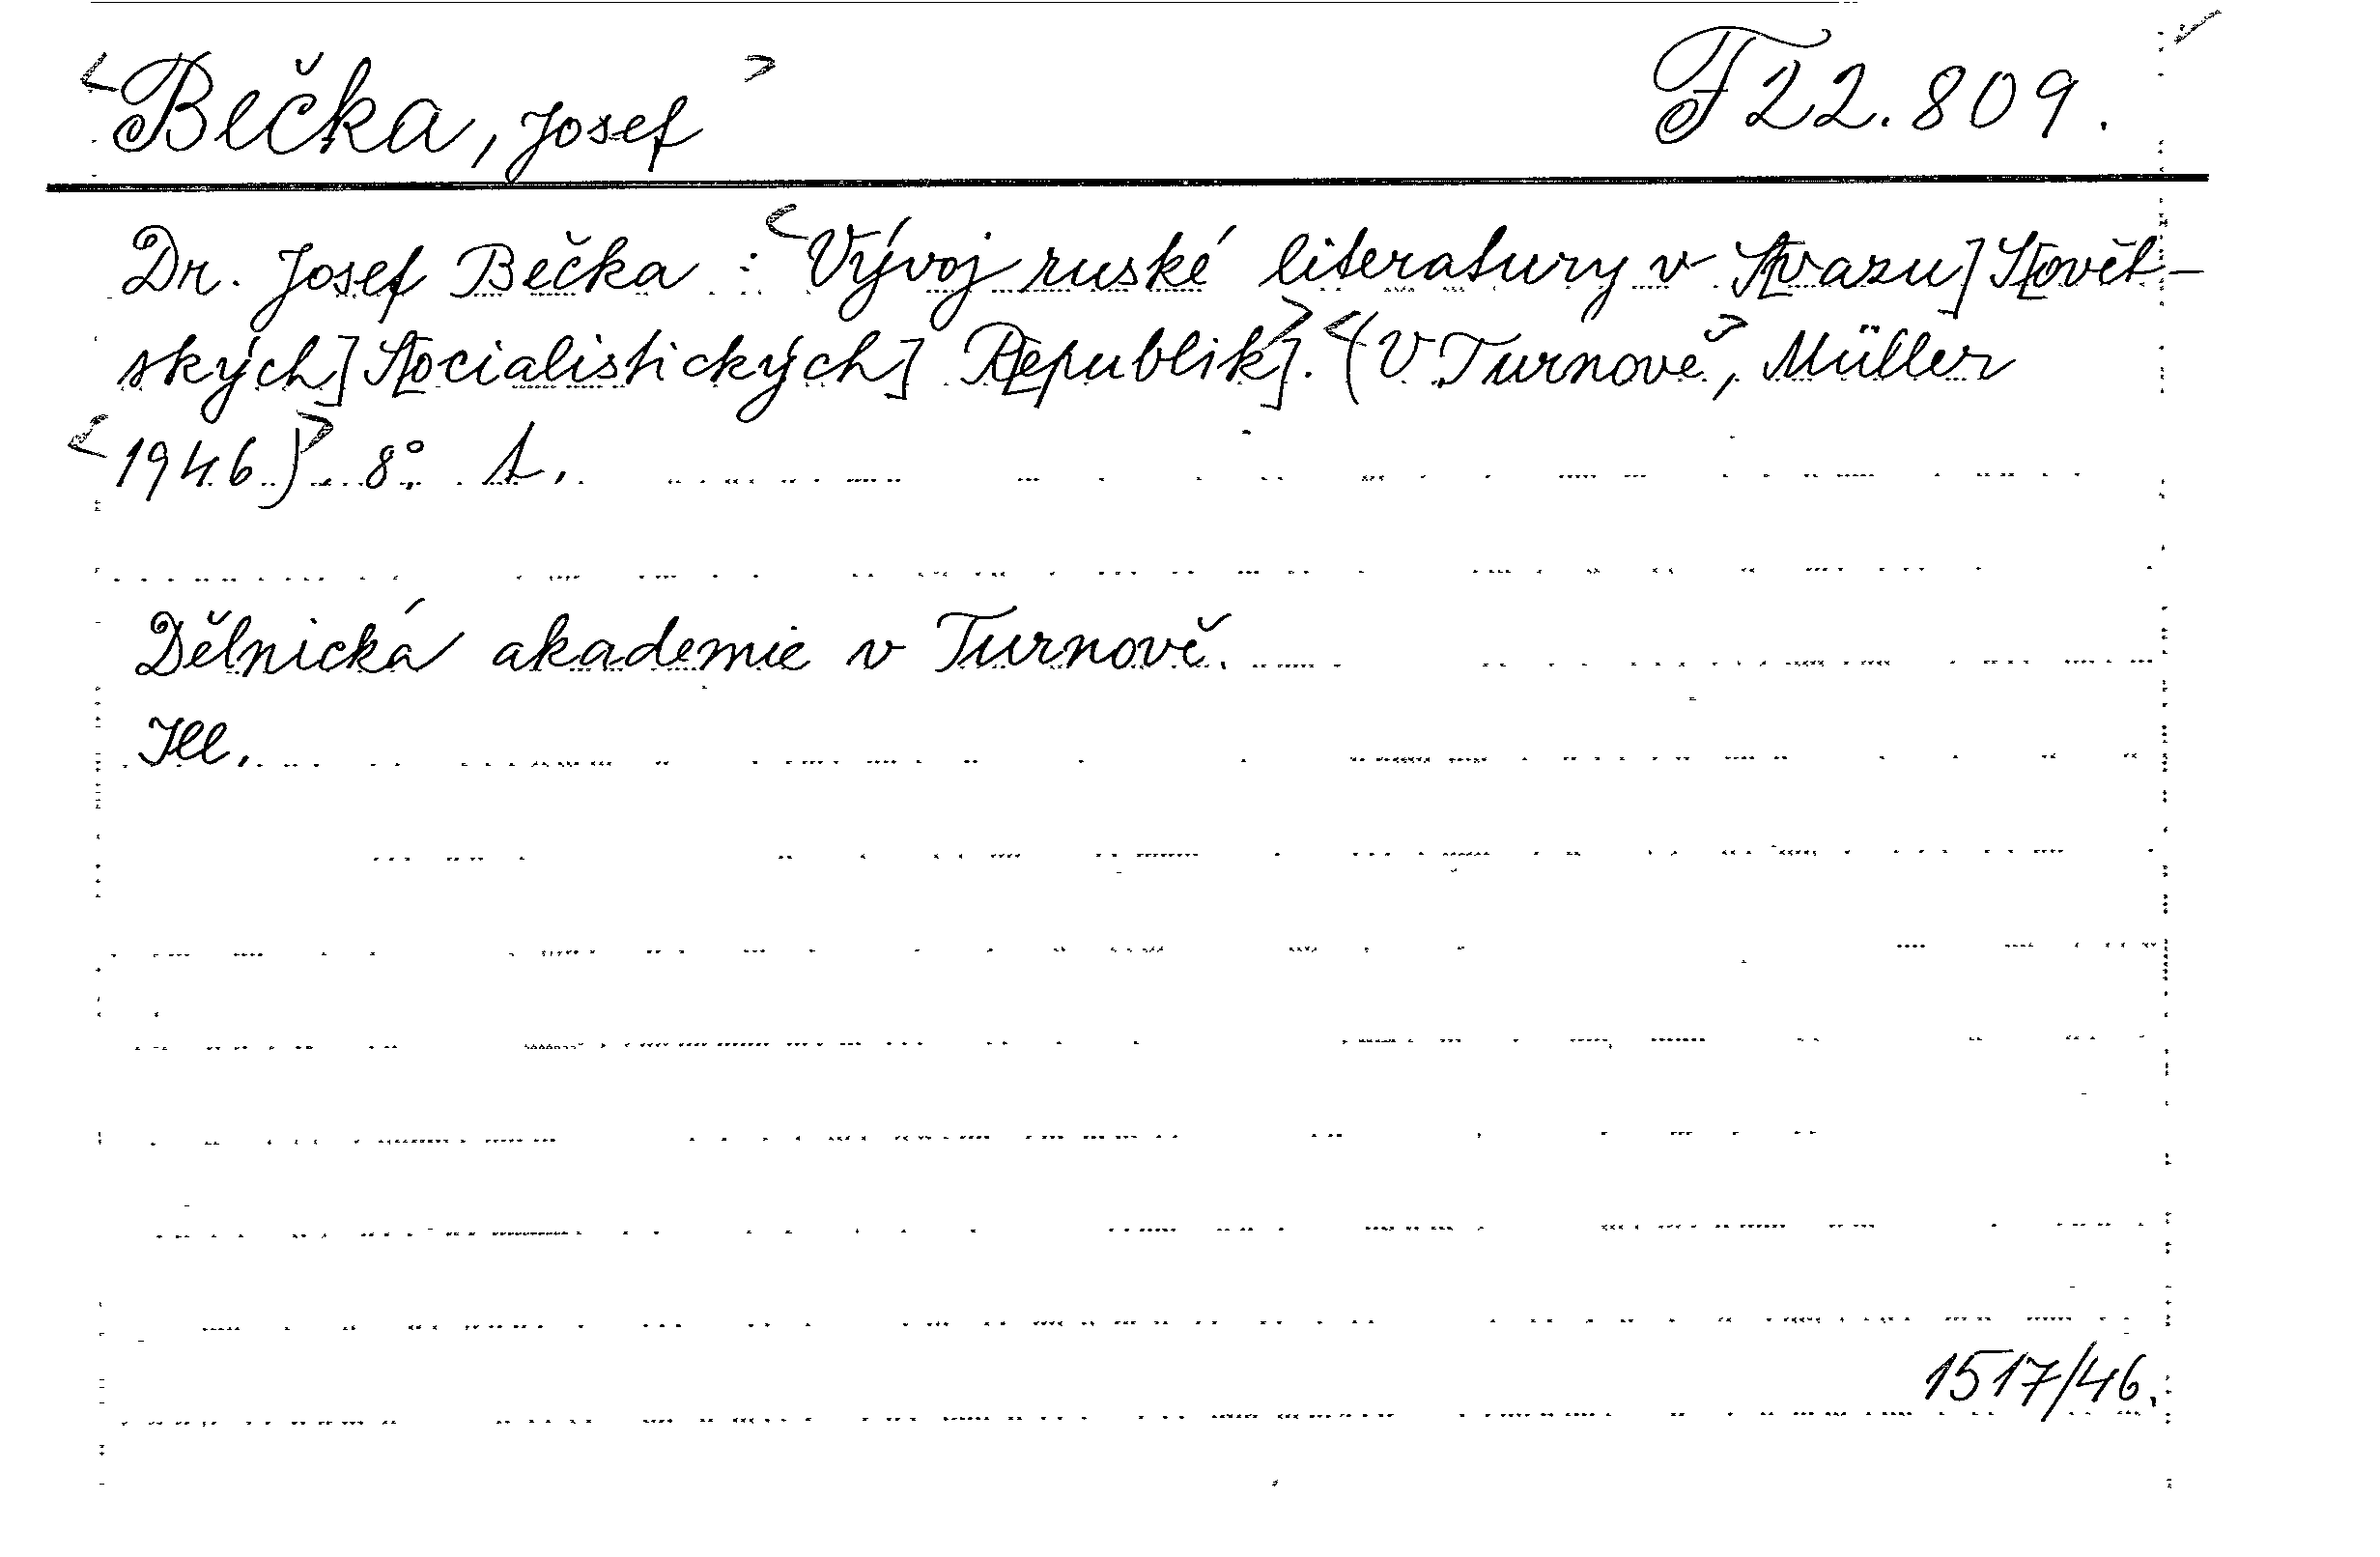 <Bečka, Josef> F 22.809.
Dr. Josef Bečka : <Vývoj ruské literatury v S[vazu] S[ovět-
ských] S[ocialistických] R[epublik].> <(V Turnově>, Müller
<1946)>. 8°. t.
Dělnická akademie v Turnově.
Ill.
1517/46.